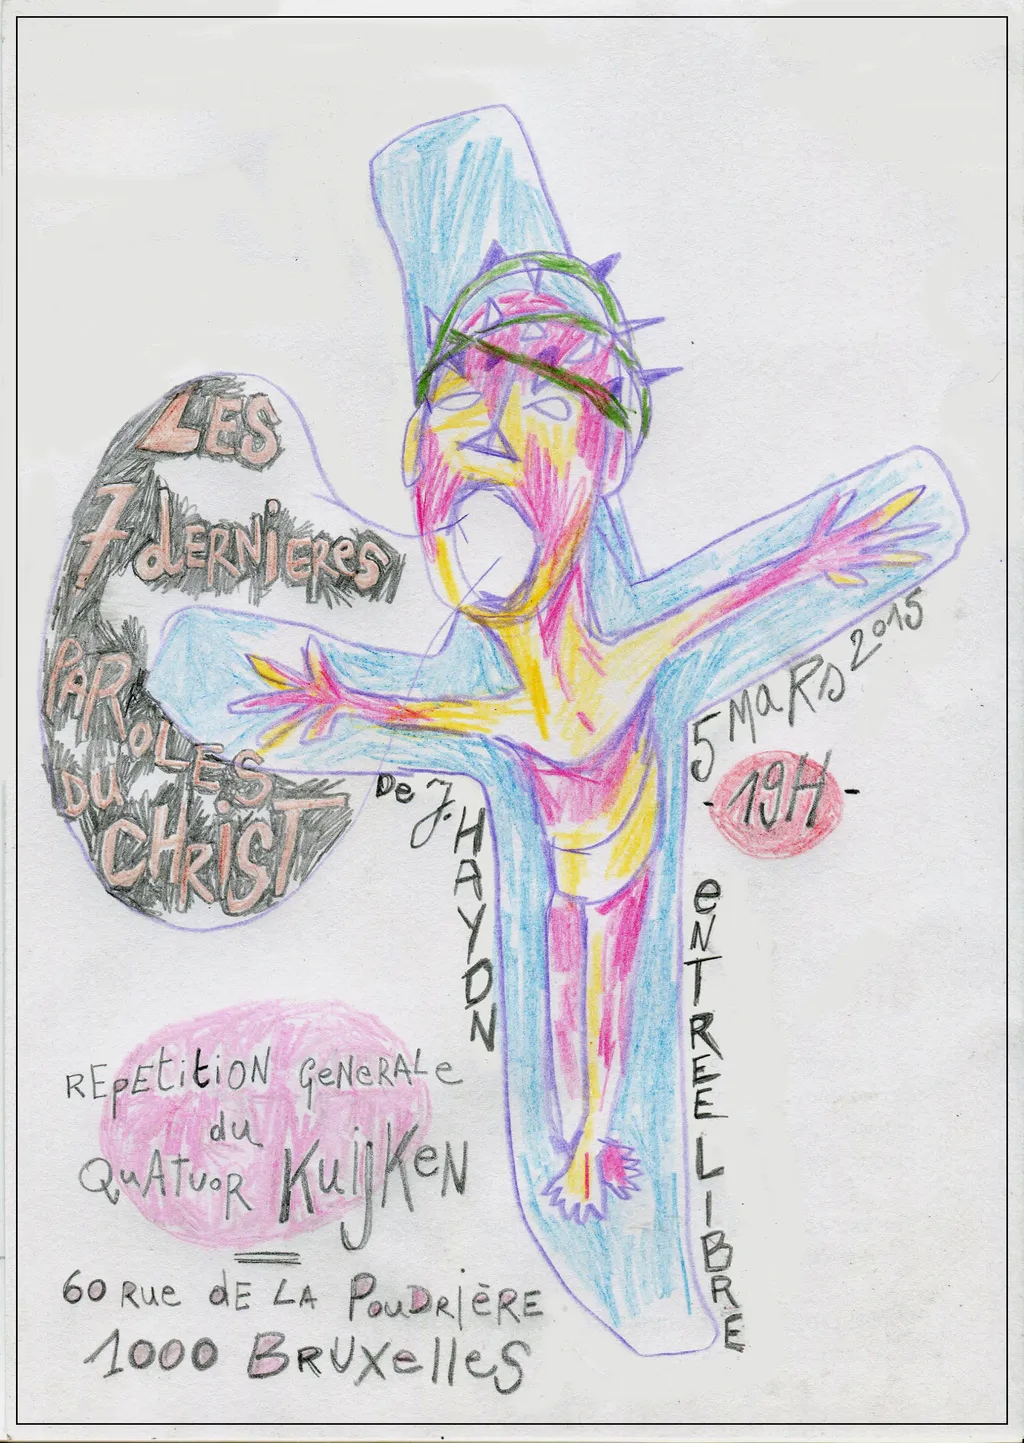 LES
7 dERNIERES
PARoLES
DU
CHRiST
De J. HAYDN
5 MaRs 2015
- 19H -
eNTREE LIBRE
REpEtitiON GeNeRALe
du
QuAtuoR KuijKeN
60 Rue dE LA PouDRièRE
1000 BRUXelleS